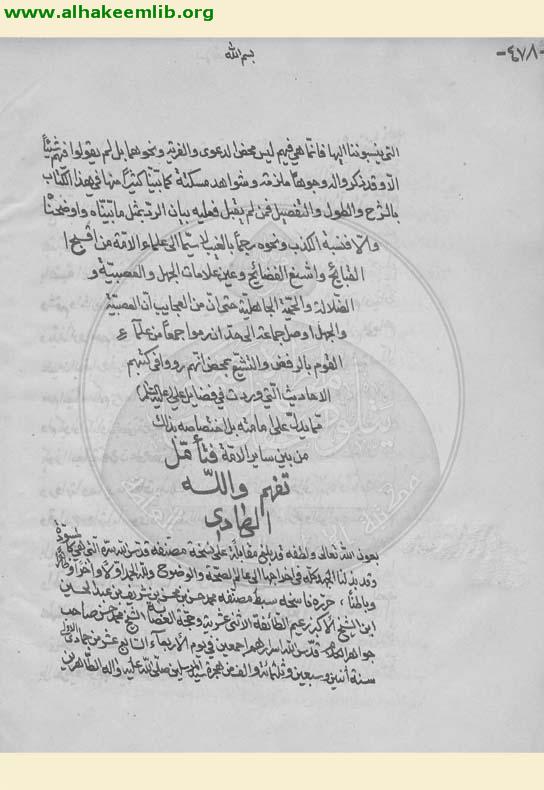 www.alhakeemlib.org
-٤٧٨-
بسم الله
التى ينسبوننا اليها فانما هى فيهم ليس محض الدعوى والفرية ونحوهما بل لم يقولوا فيهم شيئاً
الّا وقد ذكروا له وجوهاً مأخذه وشواهد مسكتة كما بيّنا كثيراً منها فى هذا الكتاب
بالشرح والطول والتفصيل فمن لم يقبل فعليه بيان الرد بمثل ما بيّناه واوضحناه
والّا فنسبة الكذب ونحوه رجماً بالغيب لاسيّما الى علماء الامّة من اقبح
القبائح واشنع الفضائح وعين علامات الجهل والعصبيّة و
الضلالة والحميّة الجاهلية حتى ان من العجايب انّ العصبيّة
والجهل اوصل جماعة الى حدّ ان رموا جمعاً من علماء
القوم بالرفض والتشيّع بمحض انّهم رووا فى كتبهم
الاحاديث التى وردت فى فضايل على عليه السلام
ممّا يدلّ على امامته بل اختصاصه بذلك
من بين ساير الامّة فتأمّل
تفهم والله
الهادى
بعون الله تعالى ولطفه قد بلغ مقابلة على نسخة مصنّفه قدّس الله سرّه التى هى
وقد بذلنا الجهد كلّه فى اخراجها الى عالم الصحّة والوضوح ولله الحمد اوّلاً وآخراً وظاهراً
وباطناً، حرّره ناسخه سبط مصنّفه محمد حسن بن محسن بن شريف بن عبد الحسين
ابن الشيخ الاكبر زعيم الطائفة الاثنى عشرية وحجة الشيخ محمد حسن صاحب
جواهر الكلام قدّس الله اسرارهم اجمعين فى يوم الأربعاء عشر من جمادى
سنة اثنين وسبعين وثلثمائة والف من هجرة سيد المرسلين صلّى الله عليه وآله الطاهرين